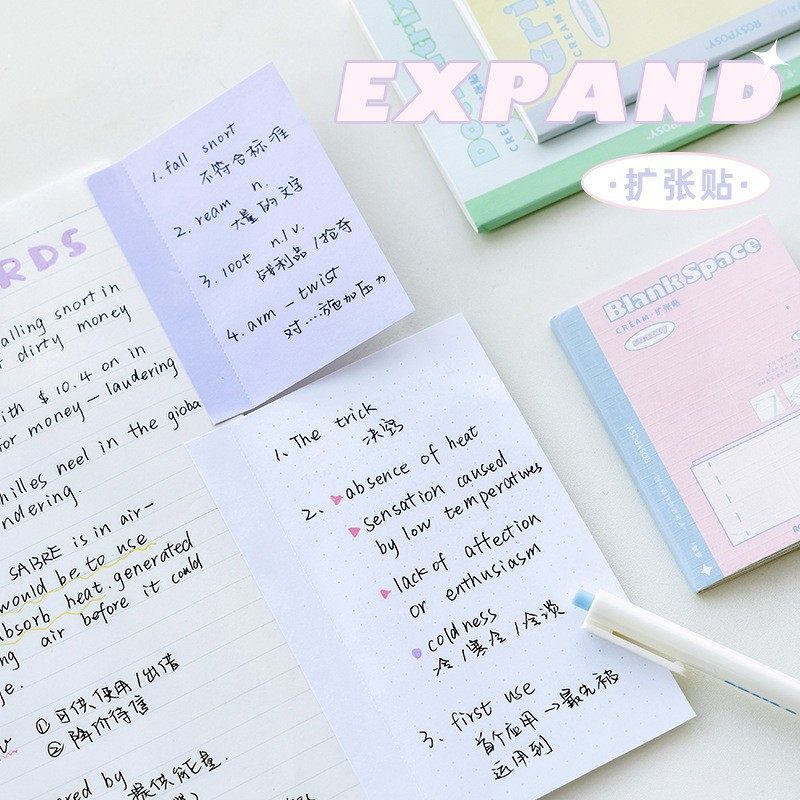 EXPAND
·扩张贴·
ROSYPOSY
CREAM·扩张贴
Blank Space
CREAM·扩张贴
ROSYPOSY
1. fall snort
不符合标准
2. ream n.
大量的文字
3. 100t n/v.
战利品/抢夺
4. arm-twist
对....施加压力
RDS
alling snort in
dirty money
ith $10.4 on in
or money-laudering
hilles neel in the gioba
ndering.
SABRE is in air-
would be to use
absorb heat.generated
ng air before it could
ge.
①可供使用/出借
②降价待售
red by
提供能量.
1. The trick
决窍
2. absence of heat
sensation caused
by low temperatures
lack of affection
or enthusiasm
coldness
冷/寒冷/冷淡
3. first use
首个应用→最先被
运用到